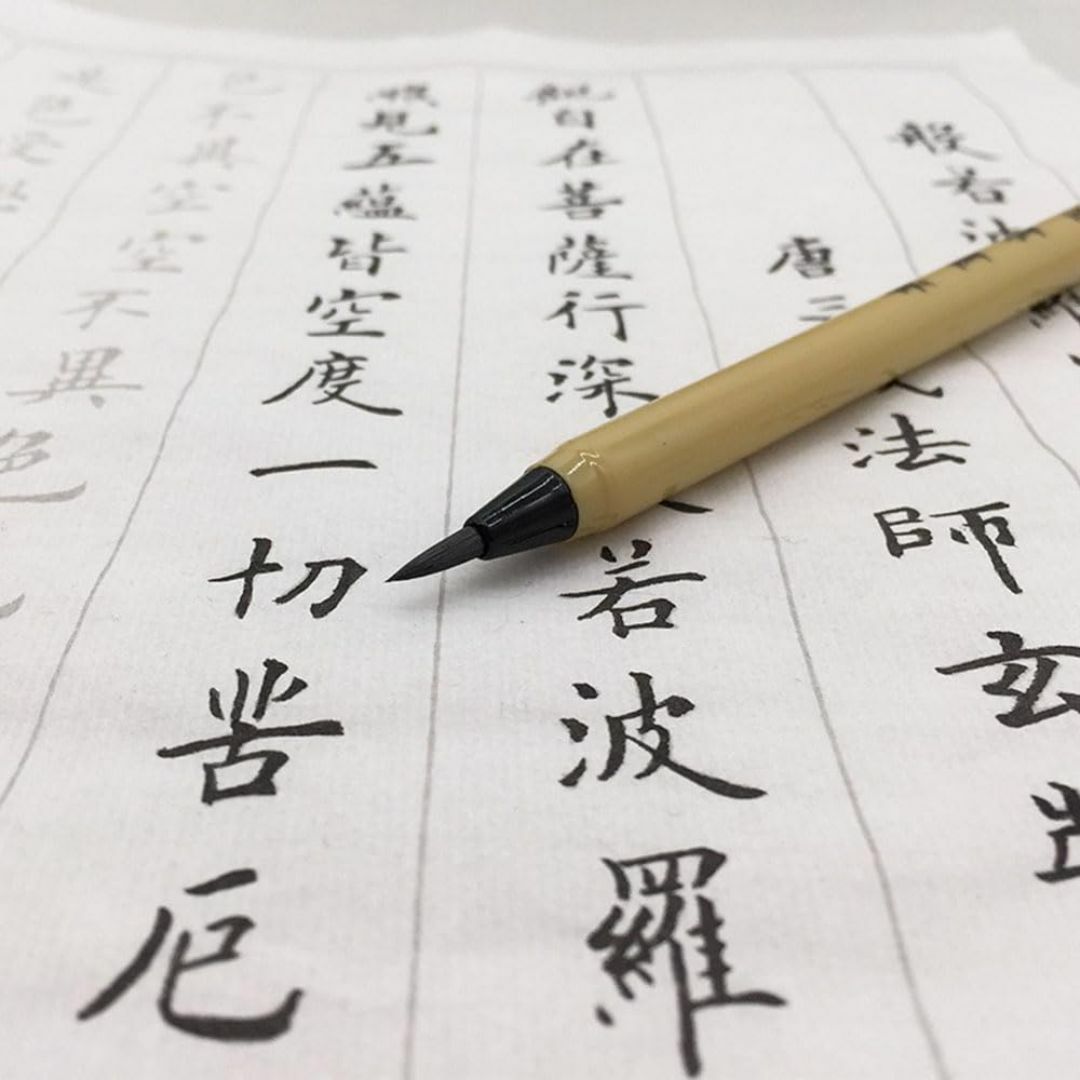 般若波
唐三法師玄
觀自在菩薩行深若波羅
照見五蘊皆空度一切苦厄
色不異空空不異色
是色受想